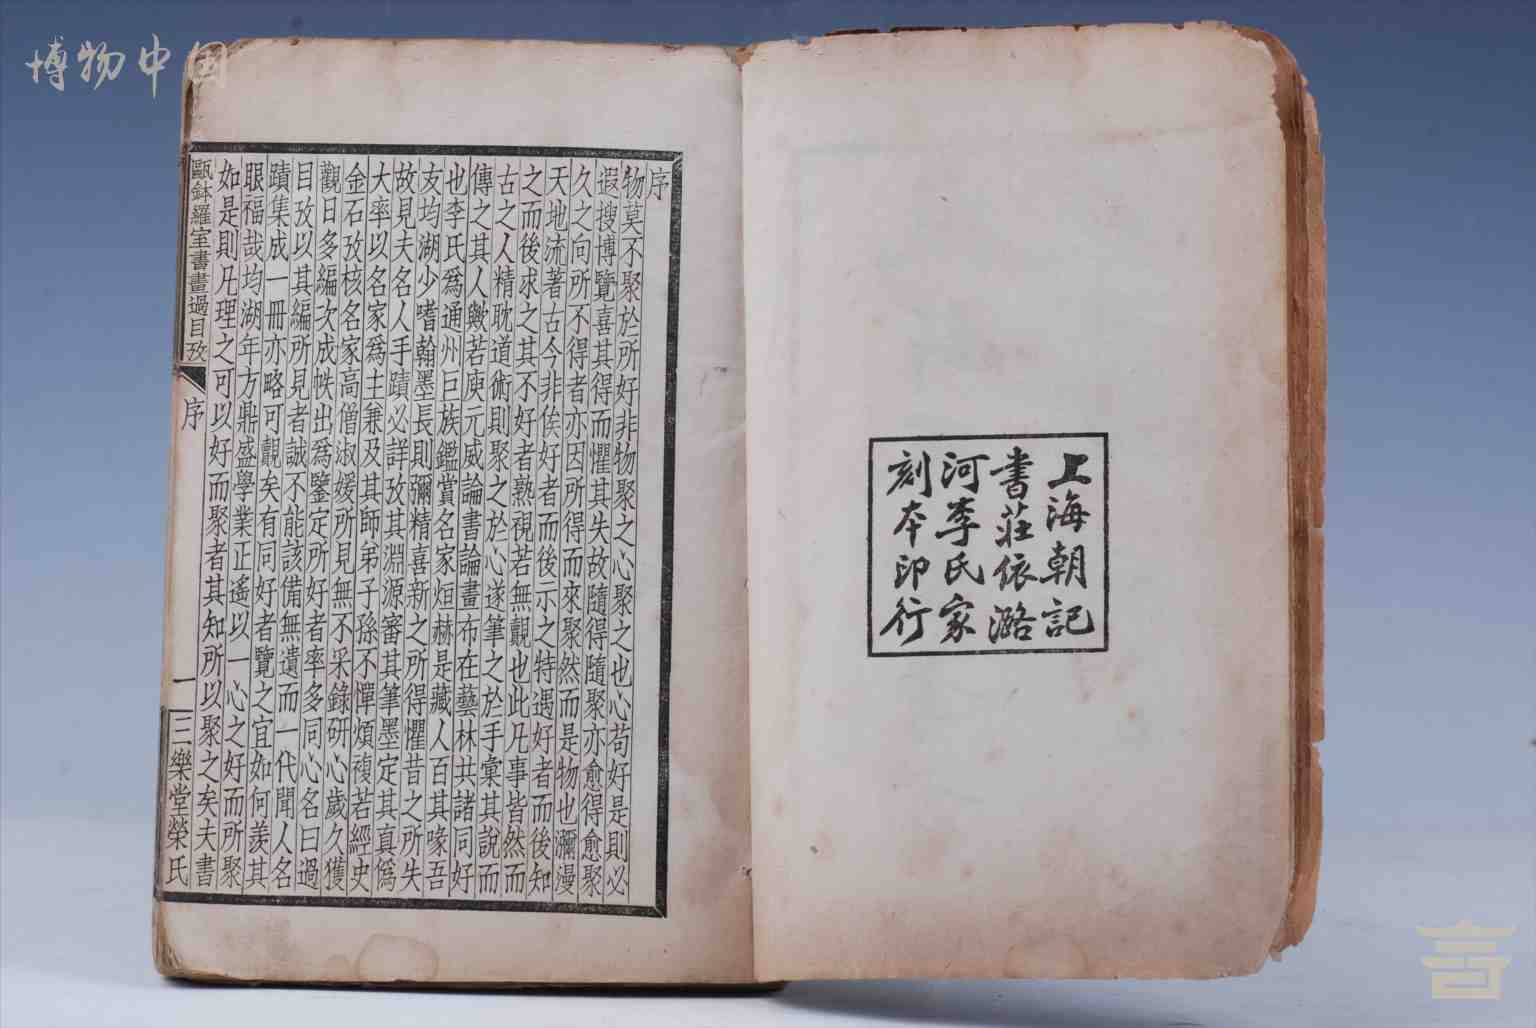 博物中国
上海朝記
書莊依潞
河李氏家
刻本印行
序
物莫不聚於所好非物聚之心聚之也心苟好是則必
遐搜博覽喜其得而懼其失故隨得隨聚亦愈得愈聚
久之向所不得者亦因所得而來聚然而是物也瀰漫
天地流著古今非俟好者而後示之特遇好者而後知
之而後求之其不好者熟視若無覩也此凡事皆然而
古之人精耽道術則聚之於心遂筆之於手彙其說而
傳之其人歟若庾元威論書論畫布在藝林共諸同好
也李氏爲通州巨族鑑賞名家烜赫是藏人百其喙吾
友均湖少嗜翰墨長則彌精喜新之所得懼昔之所失
故見夫名人手蹟必詳攷其淵源審其筆墨定其真僞
大率以名家爲主兼及其師弟子孫不憚煩複若經史
金石攷核名家高僧淑媛所見無不采錄研心歲久獲
觀日多編次成帙出爲鑒定所好者率多同心名曰過
目攷以其編所見者誠不能該備無遺而一代聞人名
蹟集成一冊亦略可觀矣有同好者覽之宜如何羨其
眼福哉均湖年方鼎盛學業正遙以一心之好而所聚
如是則凡理之可以好而聚者其知所以聚之矣夫書
甌鉢羅室書畫過目攷 序 一 三樂堂榮氏